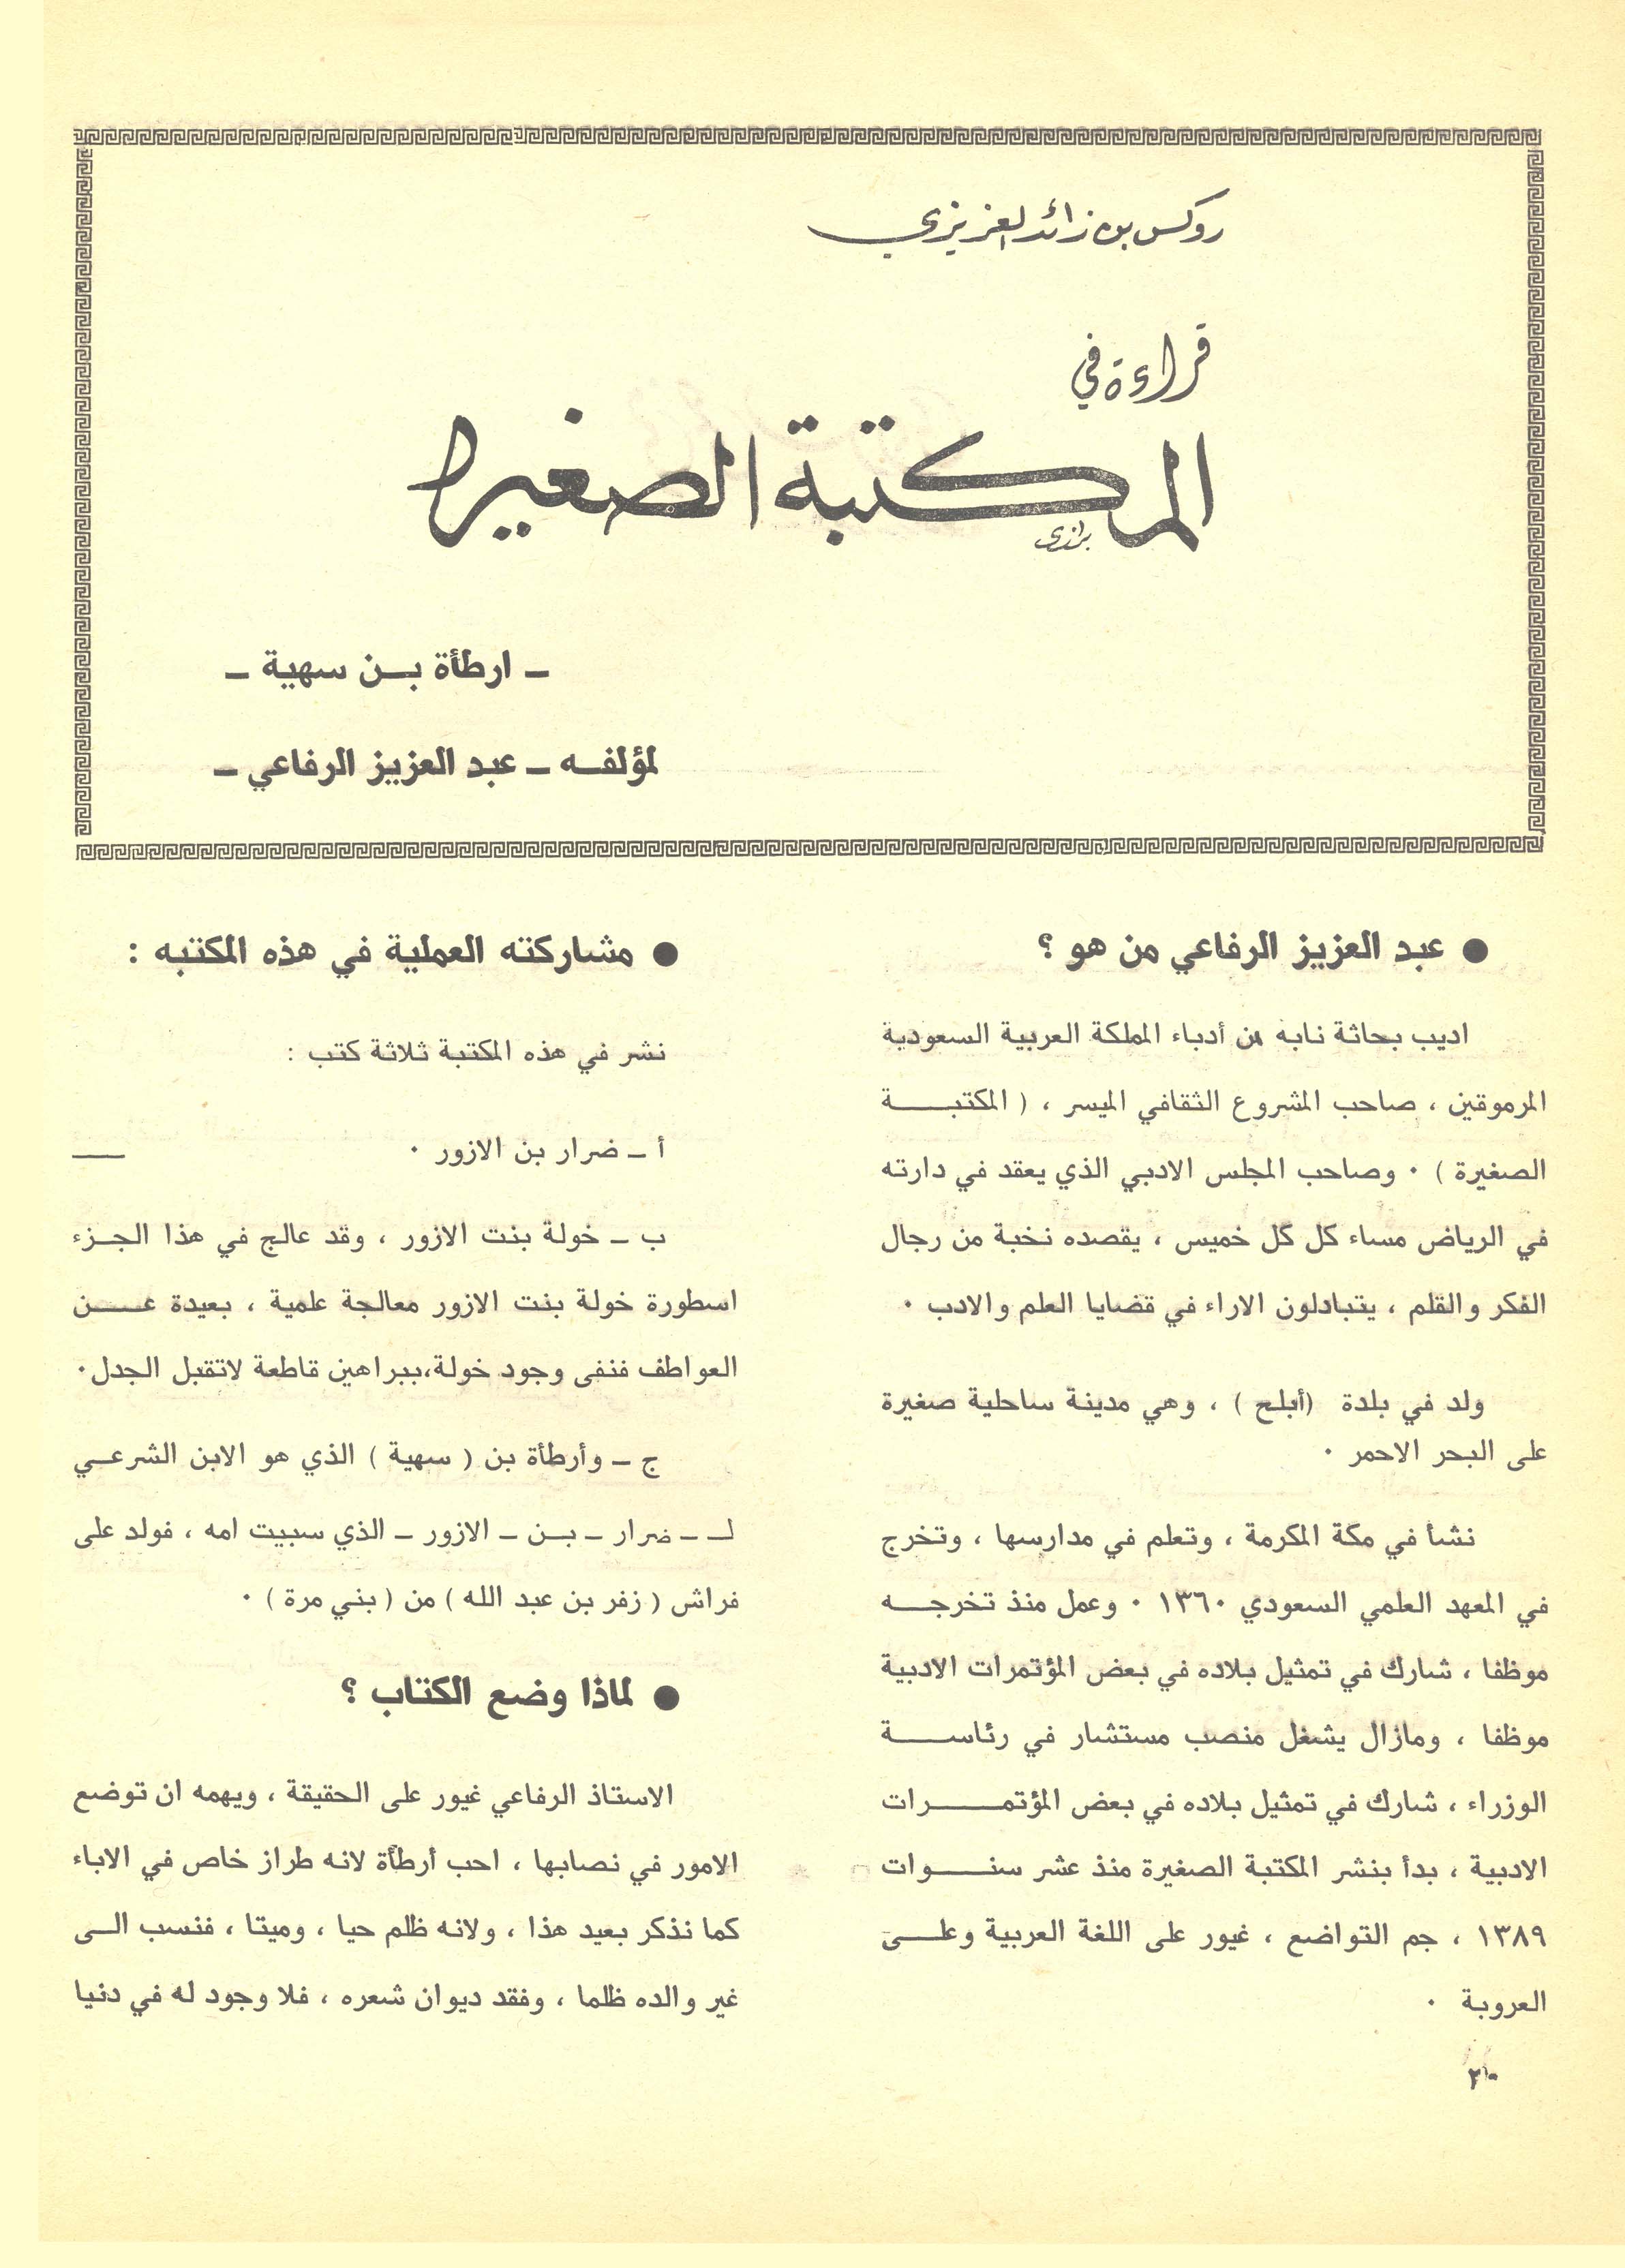 روكس بن زائد العزيزي
قراءة في
المكتبة الصغيرة
ـ ارطأة بـن سهية ـ
لمؤلفـه ـ عبد العزيز الرفاعي ـ
● عبد العزيز الرفاعي من هو ؟
اديب بحاثة نابه من أدباء المملكة العربية السعودية
المرموقين ، صاحب المشروع الثقافي الميسر ، ( المكتبـــة
الصغيرة ) ٠ وصاحب المجلس الادبي الذي يعقد في دارته
في الرياض مساء كل كل خميس ، يقصده نخبة من رجال
الفكر والقلم ، يتبادلون الاراء في قضايا العلم والادب ٠
ولد في بلدة (أبلح ) ، وهي مدينة ساحلية صغيرة
على البحر الاحمر ٠
نشأ في مكة المكرمة ، وتعلم في مدارسها ، وتخرج
في المعهد العلمي السعودي ١٣٦٠ ٠ وعمل منذ تخرجـه
موظفا ، شارك في تمثيل بلاده في بعض المؤتمرات الادبية
موظفا ، ومازال يشغل منصب مستشار في رئاســة
الوزراء ، شارك في تمثيل بلاده في بعض المؤتمــرات
الادبية ، بدأ بنشر المكتبة الصغيرة منذ عشر سنــوات
١٣٨٩ ، جم التواضع ، غيور على اللغة العربية وعلــى
العروبة ٠
● مشاركته العملية في هذه المكتبه :
نشر في هذه المكتبة ثلاثة كتب :
أ ـ ضرار بن الازور ٠
ب ـ خولة بنت الازور ، وقد عالج في هذا الجـزء
اسطورة خولة بنت الازور معالجة علمية ، بعيدة عــن
العواطف فنفى وجود خولة،ببراهين قاطعة لاتقبل الجدل٠
ج ـ وأرطأة بن ( سهية ) الذي هو الابن الشرعـي
لـ ـ ضرار ـ بـن ـ الازور ـ الذي سبيت امه ، فولد على
فراش ( زفر بن عبد الله ) من ( بني مرة ) ٠
● لماذا وضع الكتاب ؟
الاستاذ الرفاعي غيور على الحقيقة ، ويهمه ان توضع
الامور في نصابها ، احب أرطأة لانه طراز خاص في الاباء
كما نذكر بعيد هذا ، ولانه ظلم حيا ، وميتا ، فنسب الـى
غير والده ظلما ، وفقد ديوان شعره ، فلا وجود له في دنيا